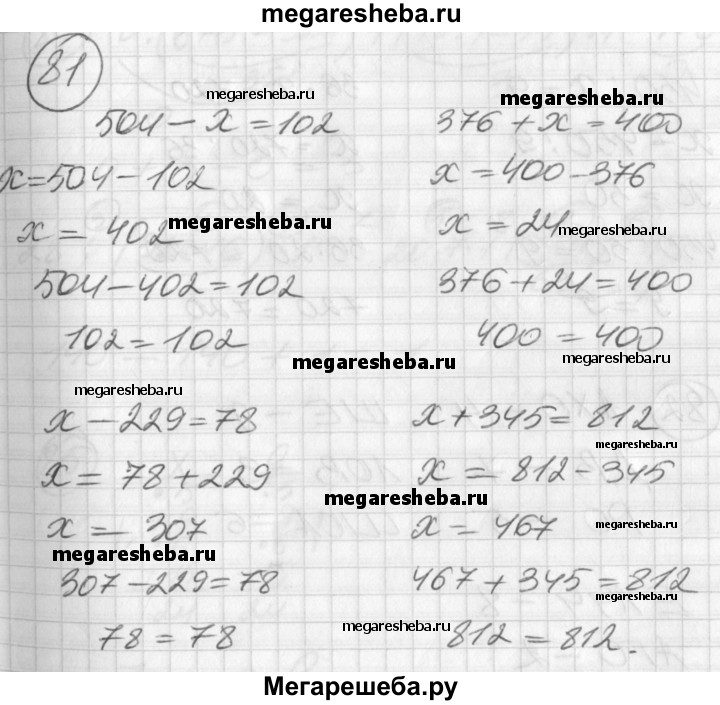 megaresheba.ru
81
megaresheba.ru
megaresheba.ru
504 - x = 102
x = 504 - 102
x = 402
megaresheba.ru
504 - 402 = 102
102 = 102
376 + x = 400
x = 400 - 376
x = 24
megaresheba.ru
376 + 24 = 400
400 = 400
megaresheba.ru
megaresheba.ru
megaresheba.ru
x - 229 = 78
x = 78 + 229
x = 307
megaresheba.ru
307 - 229 = 78
78 = 78
x + 345 = 812
megaresheba.ru
x = 812 - 345
megaresheba.ru
x = 467
megaresheba.ru
467 + 345 = 812
megaresheba.ru
812 = 812.
megaresheba.ru
Мегарешеба.ру